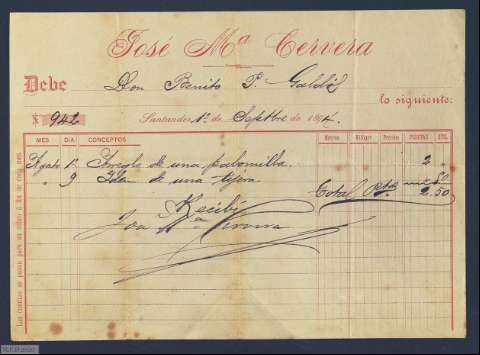 José Mª Cervera
Debe Don Benito P. Galdós
lo siguiente:
Nº 942 Santander 1º de Septbre de 1894.
MES DIA CONCEPTOS Metros Kilógs Precio PESETAS CTS.
Agoto 1º Arreglo de una palomilla 2
" 9 Idm de una tijera 50
Total Ptas 2.50
Recibí
José Mª Cervera
Las cuentas se pasan para su cobro á fin de cada mes.